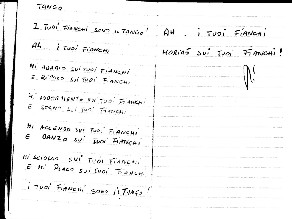 TANGO
I TUOI FIANCHI SONO IL TANGO
AH... I TUOI FIANCHI
MI ADAGIO SUI TUOI FIANCHI
E RITMO SUI TUOI FIANCHI
SUI TUOI FIANCHI
E SUI TUOI FIANCHI
MI ACCENDO SUI TUOI FIANCHI
E DANZO SUI TUOI FIANCHI
MI SCIOLGO SUI TUOI FIANCHI
E MI PLACO SUI TUOI FIANCHI
I TUOI FIANCHI SONO IL TANGO!
AH... I TUOI FIANCHI
MORIRÒ SUI TUOI FIANCHI!